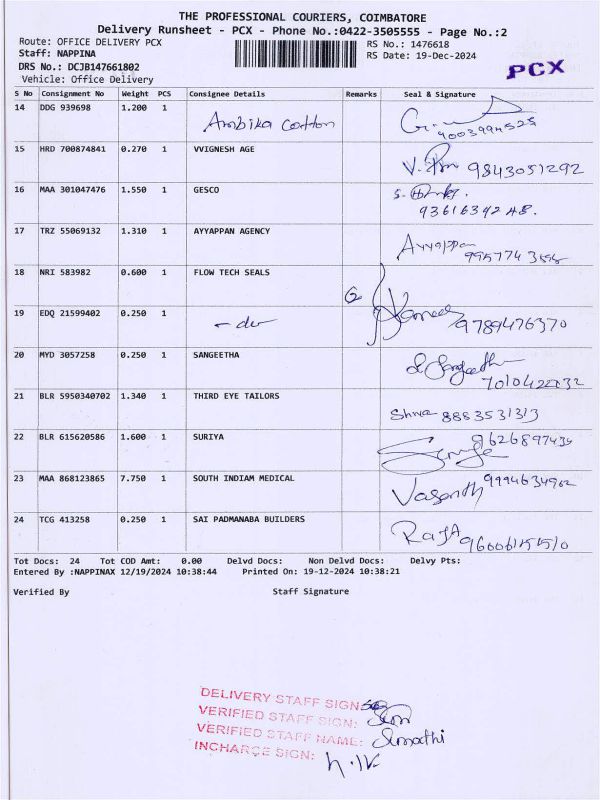 THE PROFESSIONAL COURIERS, COIMBATORE
Delivery Runsheet - PCX - Phone No.:0422-3505555 - Page No.:2
Route: OFFICE DELIVERY PCX
RS No.: 1476618
Staff: NAPPINA
RS Date: 19-Dec-2024
DRS No.: DCJB147661802
Vehicle: Office Delivery
PCX
S No Consignment No Weight PCS Consignee Details Remarks Seal & Signature
14 DDG 939698 1.200 1 Ambika Cotton
15 HRD 700874841 0.270 1 VVIGNESH AGE 9843051292
16 MAA 301047476 1.550 1 GESCO
17 TRZ 55069132 1.310 1 AYYAPPAN AGENCY Ayyappan
18 NRI 583982 0.600 1 FLOW TECH SEALS
19 EDQ 21599402 0.250 1 9789476370
20 MYD 3057258 0.250 1 SANGEETHA
21 BLR 5950340702 1.340 1 THIRD EYE TAILORS Shiva 8883531313
22 BLR 615620586 1.600 1 SURIYA
23 MAA 868123865 7.750 1 SOUTH INDIAM MEDICAL Vasanth
24 TCG 413258 0.250 1 SAI PADMANABA BUILDERS RAJA
Tot Docs: 24 Tot COD Amt: 0.00 Delvd Docs: Non Delvd Docs: Delvy Pts:
Entered By :NAPPINAX 12/19/2024 10:38:44 Printed On: 19-12-2024 10:38:21
Verified By Staff Signature
DELIVERY STAFF SIGN:
VERIFIED STAFF SIGN:
VERIFIED STAFF NAME: Sumathi
INCHARGE SIGN: